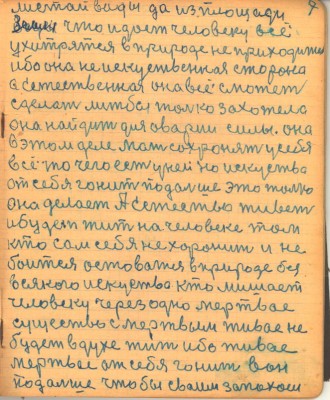 листай вады да из площади
что идет человеку всё
ухитрятся в природе не приходитса
ибо она не искуственная сторона
а естественная она всё сможет
сделат литбы толко захотела
она найдит для аварии силы. она
в этом деле мат сохронят у себя
всё то чего ест у ней но искуства
от себя гонит подалше это толко
она делает. А естество живет
и будет жит на человеке том
кто сам себя не хоронит и не
боится остоватся в природе без
всякого искуства кто мишает
человеку через одно мертвае
существо с мертвым живае не
будет в духе жит ибо живае
мертвае от себя гонит вон
подалше чтобы сваим запахом